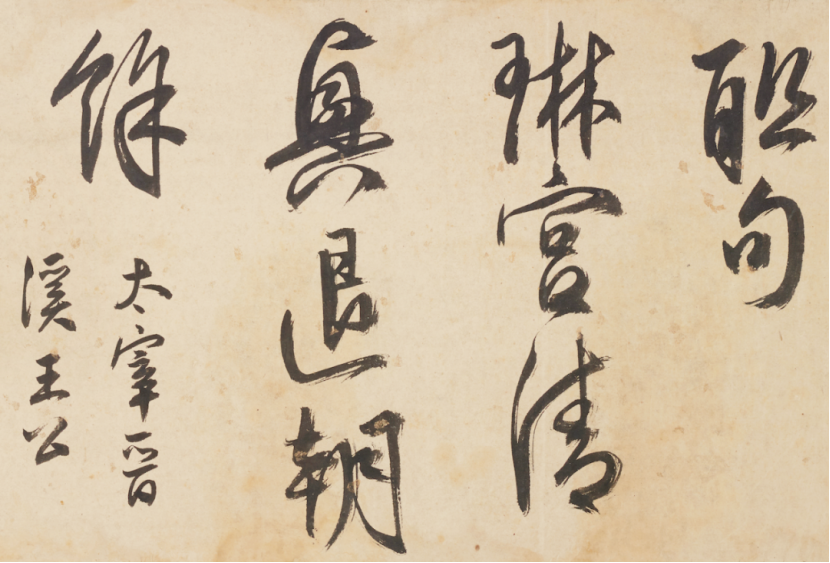 聯句
琳宮清
真退朝
餘
太宰晉
溪王公